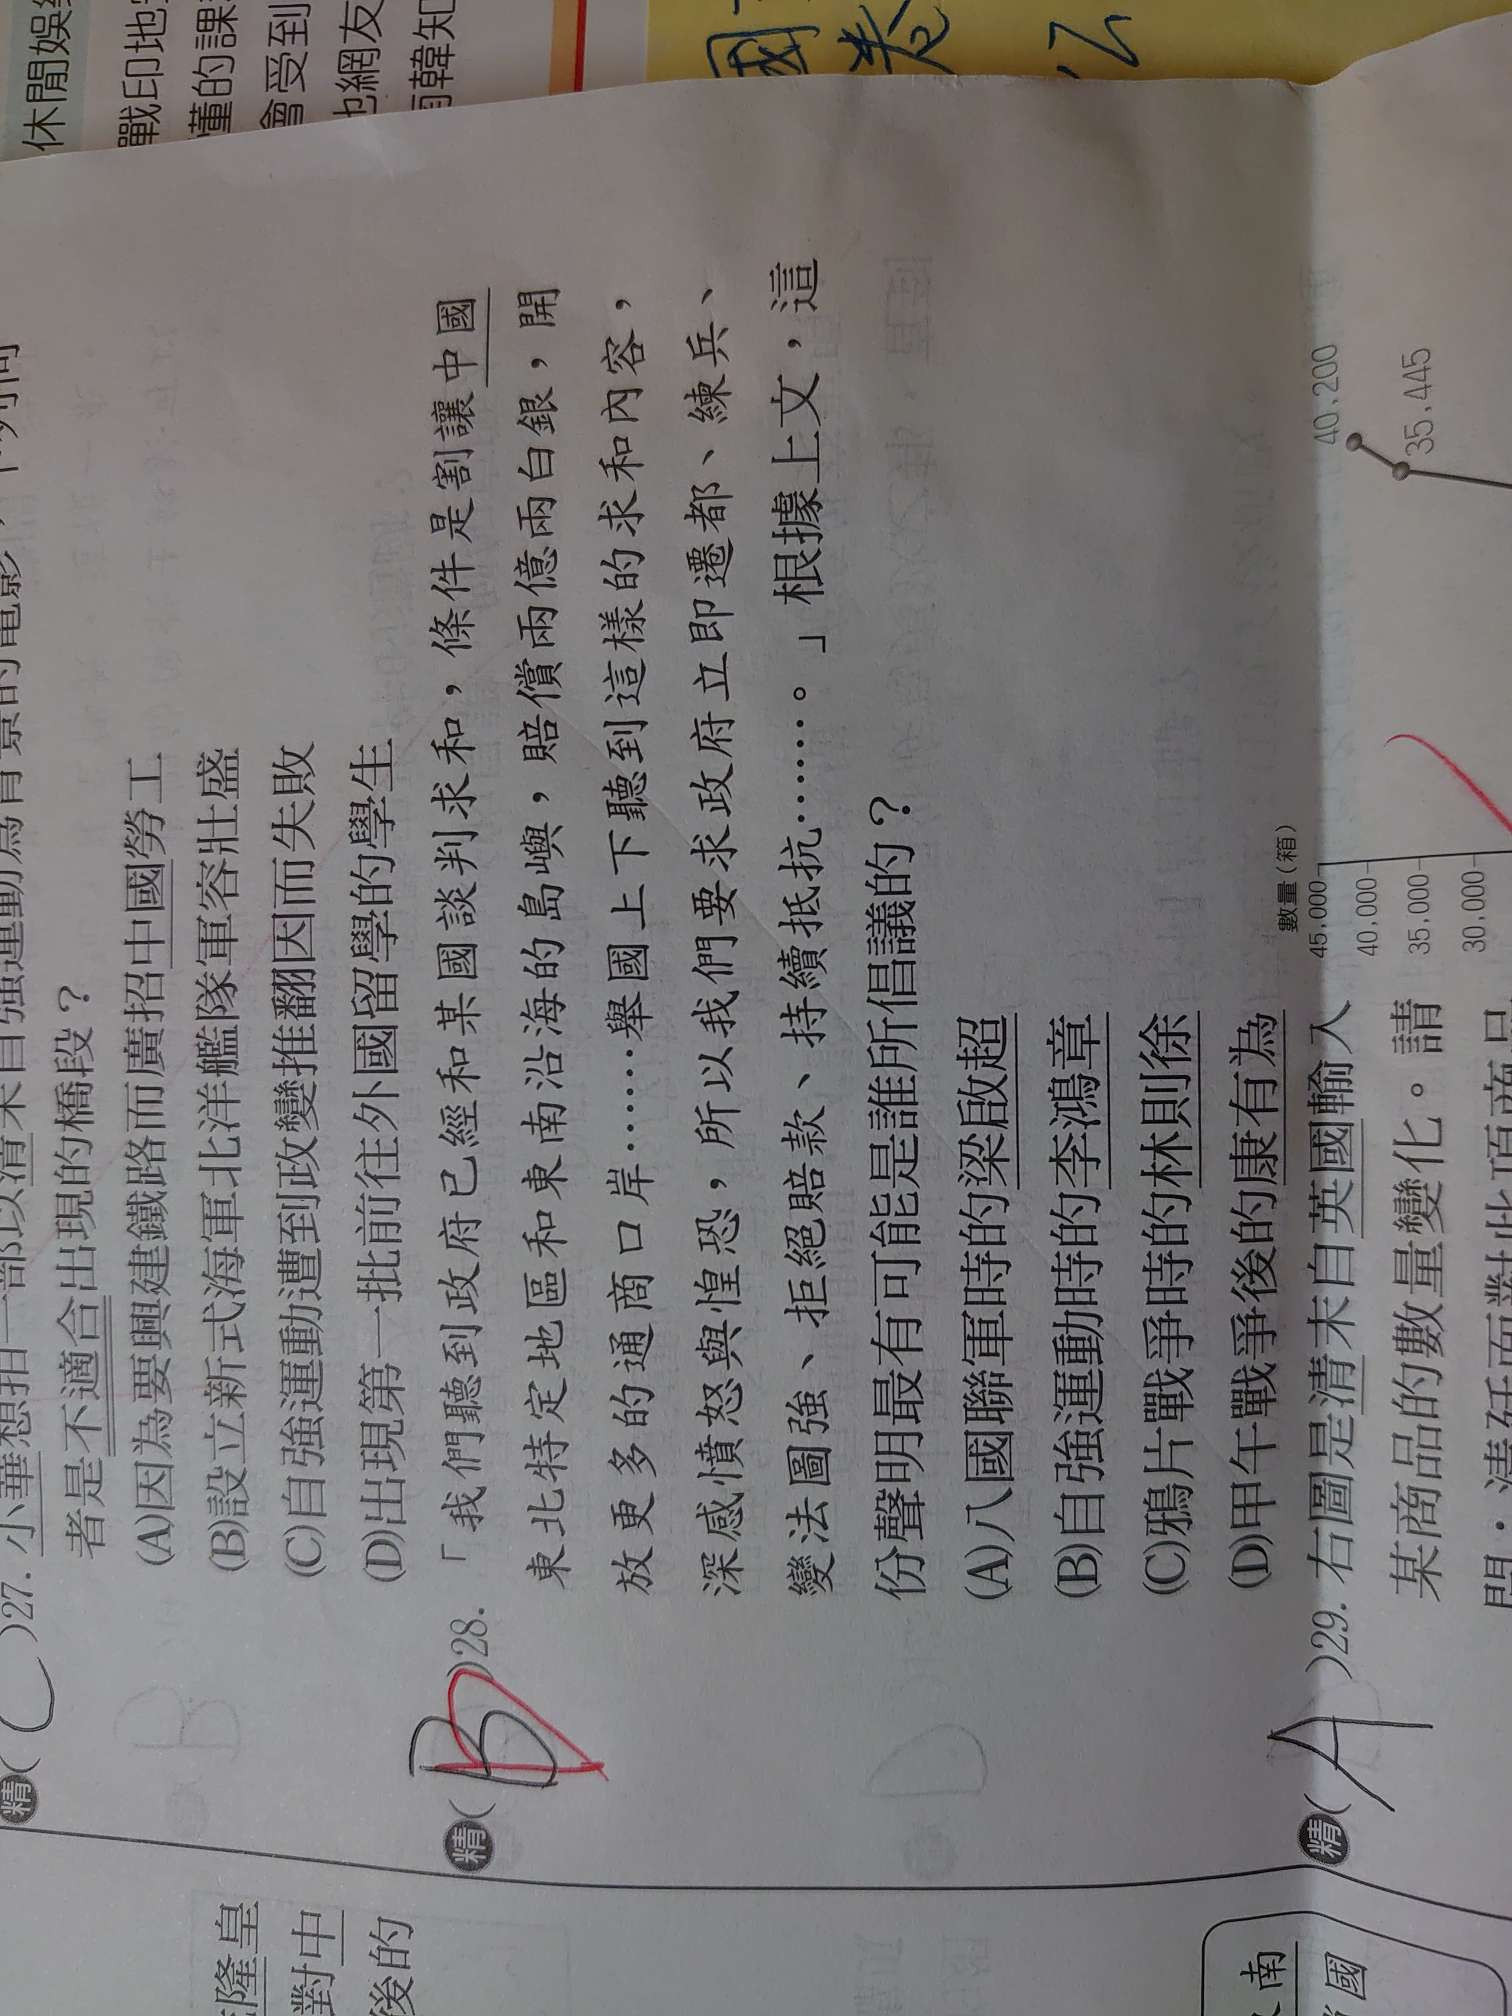 休閒娛
戰印地
懂的課
會受到
也網友
韓知
國
卷
乙
隆皇
對中
後的
南
國
精( C )27. 小華想拍一部以清末自強運動為背景的電影，下列何
者是不適合出現的橋段？
(A)因為要興建鐵路而廣招中國勞工
(B)設立新式海軍北洋艦隊軍容壯盛
(C)自強運動遭到政變推翻因而失敗
(D)出現第一批前往外國留學的學生
精( B )28. 「我們聽到政府已經和某國談判求和，條件是割讓中國
東北特定地區和東南沿海的島嶼，賠償兩億兩白銀，開
放更多的通商口岸……舉國上下聽到這樣的求和內容，
深感憤怒與惶恐，所以我們要求政府立即遷都、練兵、
變法圖強、拒絕賠款、持續抵抗……。」根據上文，這
份聲明最有可能是誰所倡議的？
(A)八國聯軍時的梁啟超
(B)自強運動時的李鴻章
(C)鴉片戰爭時的林則徐
(D)甲午戰爭後的康有為
精( A )29. 右圖是清末自英國輸入
某商品的數量變化。請
問：清廷面對此項商品
數量(箱)
45,000
40,000
35,000
30,000
40,200
35,445